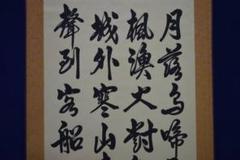 月落烏啼
楓漁火對
城外寒山
聲到客船